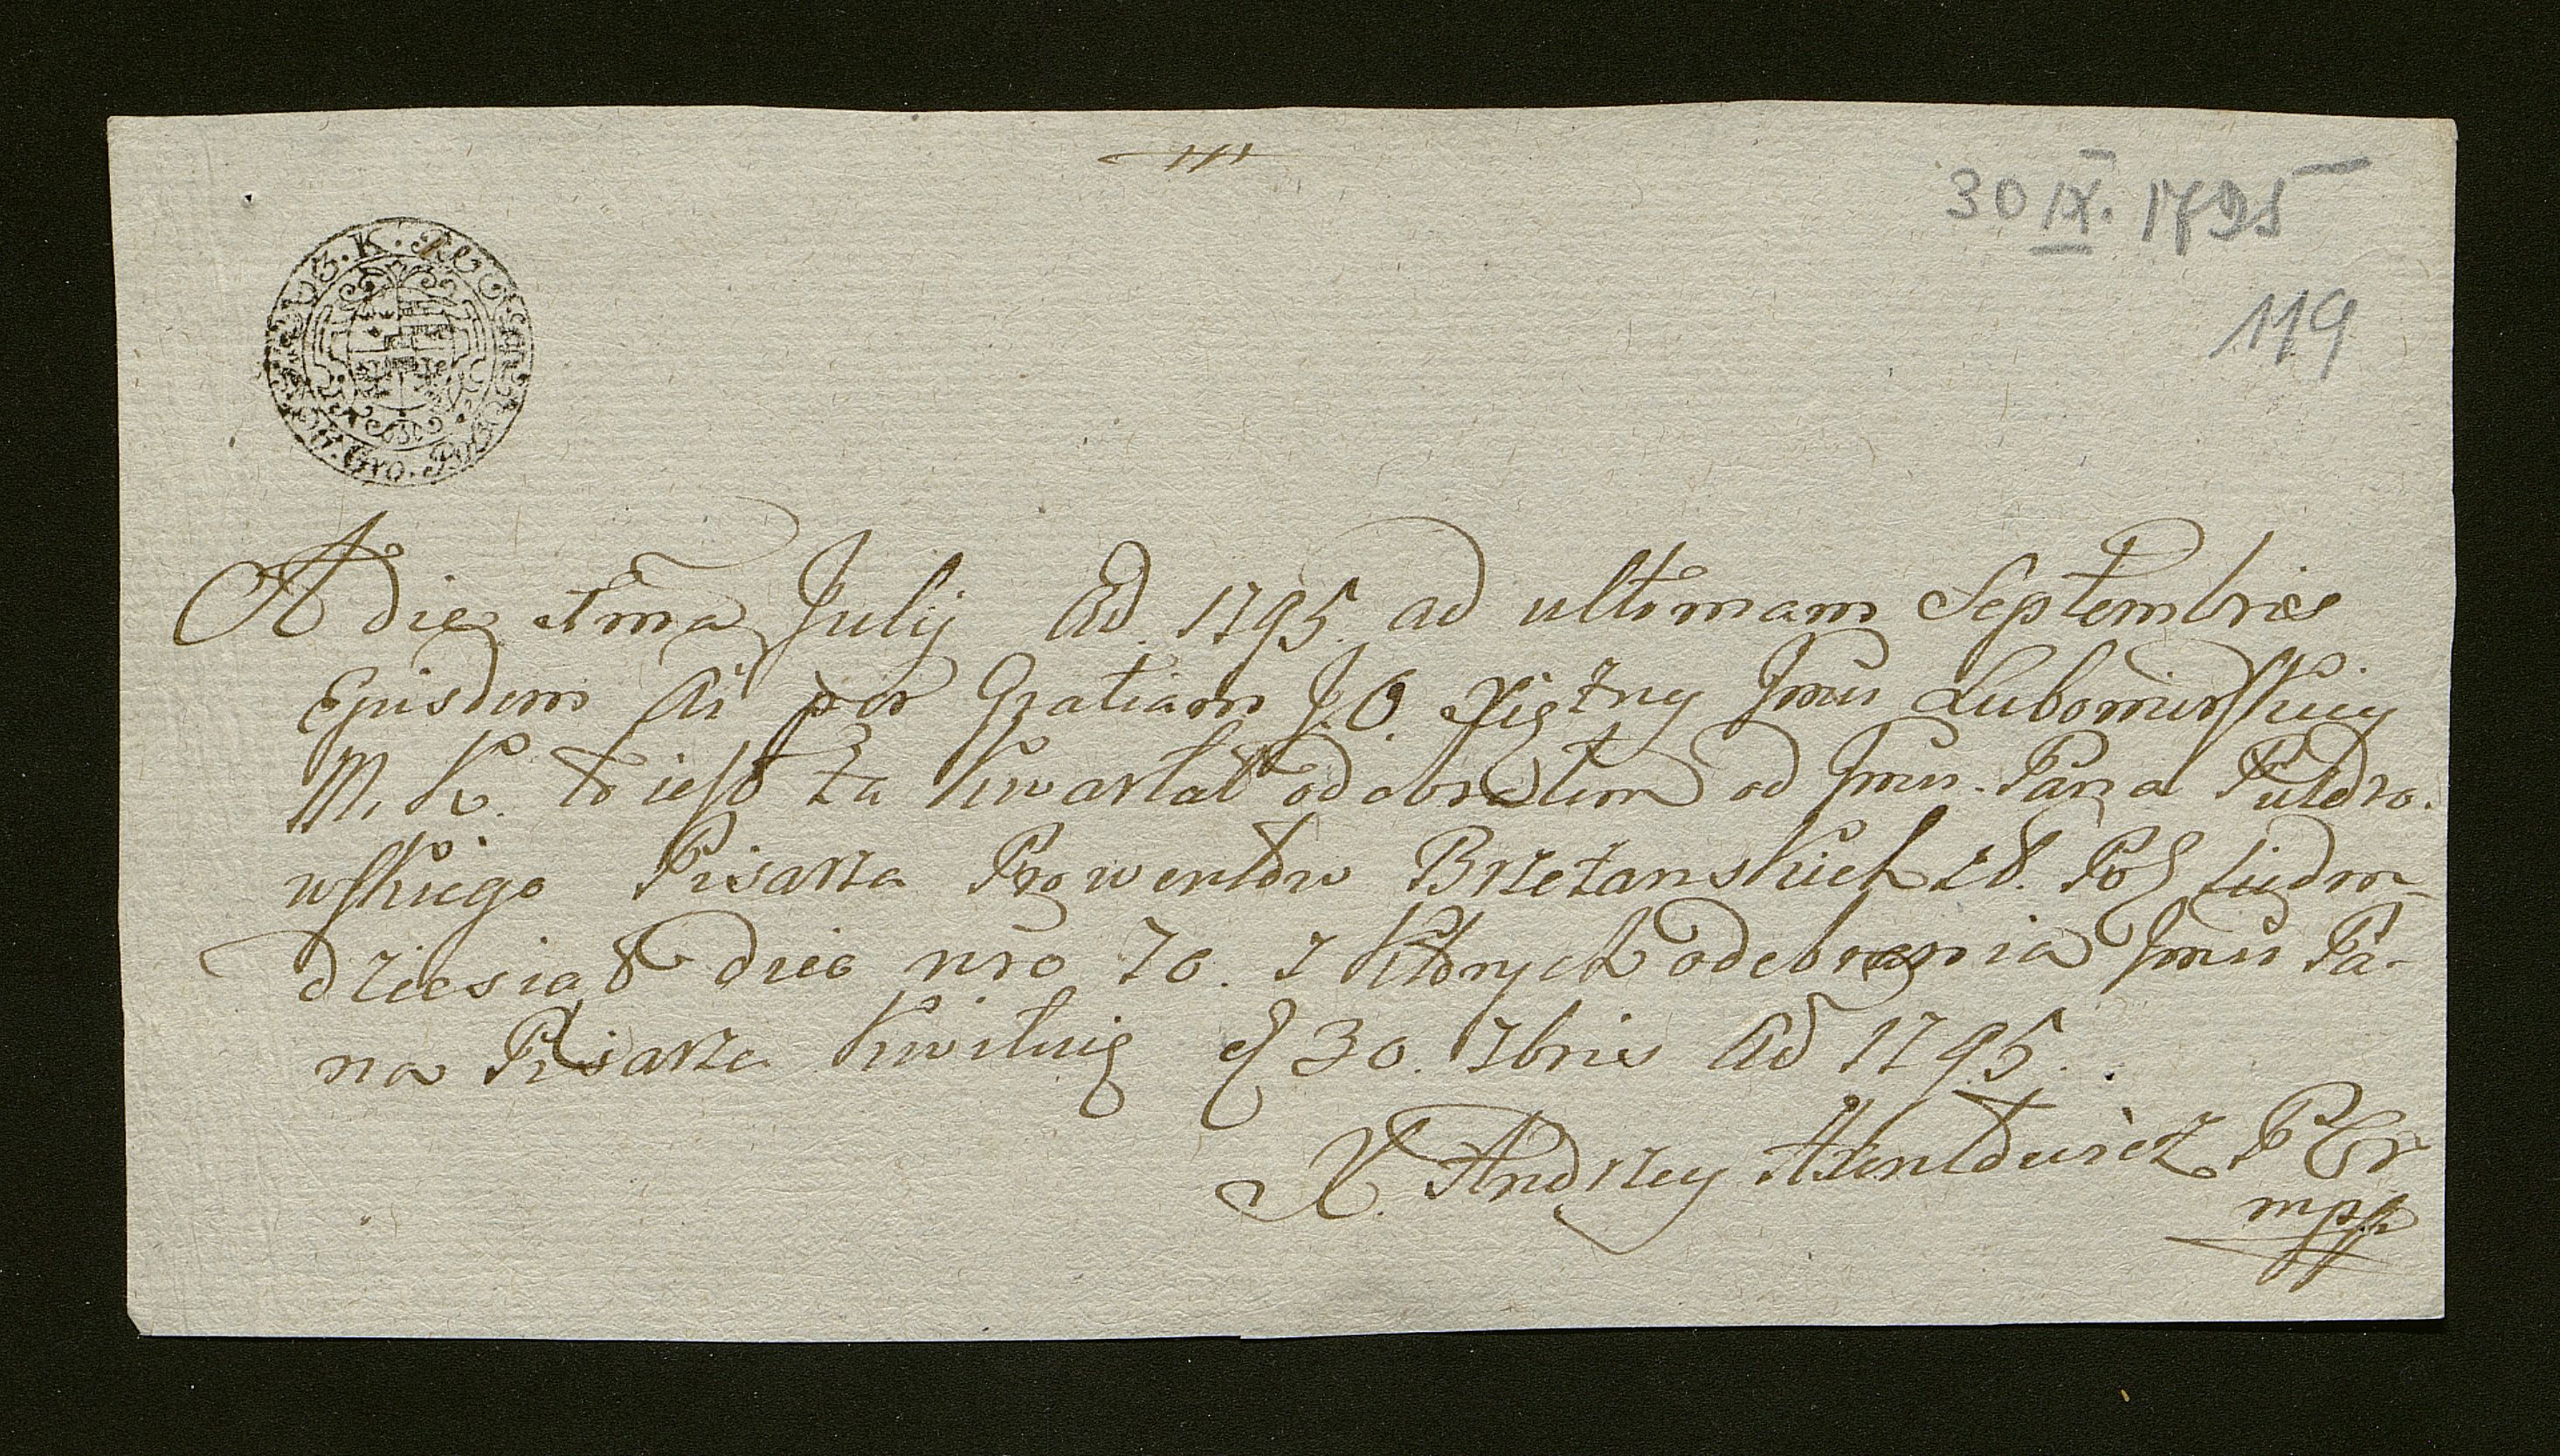 30 IX. 1795
119
A die 1ma Julij AD. 1795. ad ultimam Septembris
Ejusdem Ai per Gratiam J. O. Xiężny Jmci Lubomirskiey
M. K. to iest za Kwartał odebrałem od Jmci Pana
wskiego Pisarza Prowentów Brzeżanskich Pol siedm-
dziesiąt nro 70. z których odebrania Jmci Pa-
na Pisarza kwituię 30. 7bris AD 1795.
X. Andrzey
mpp